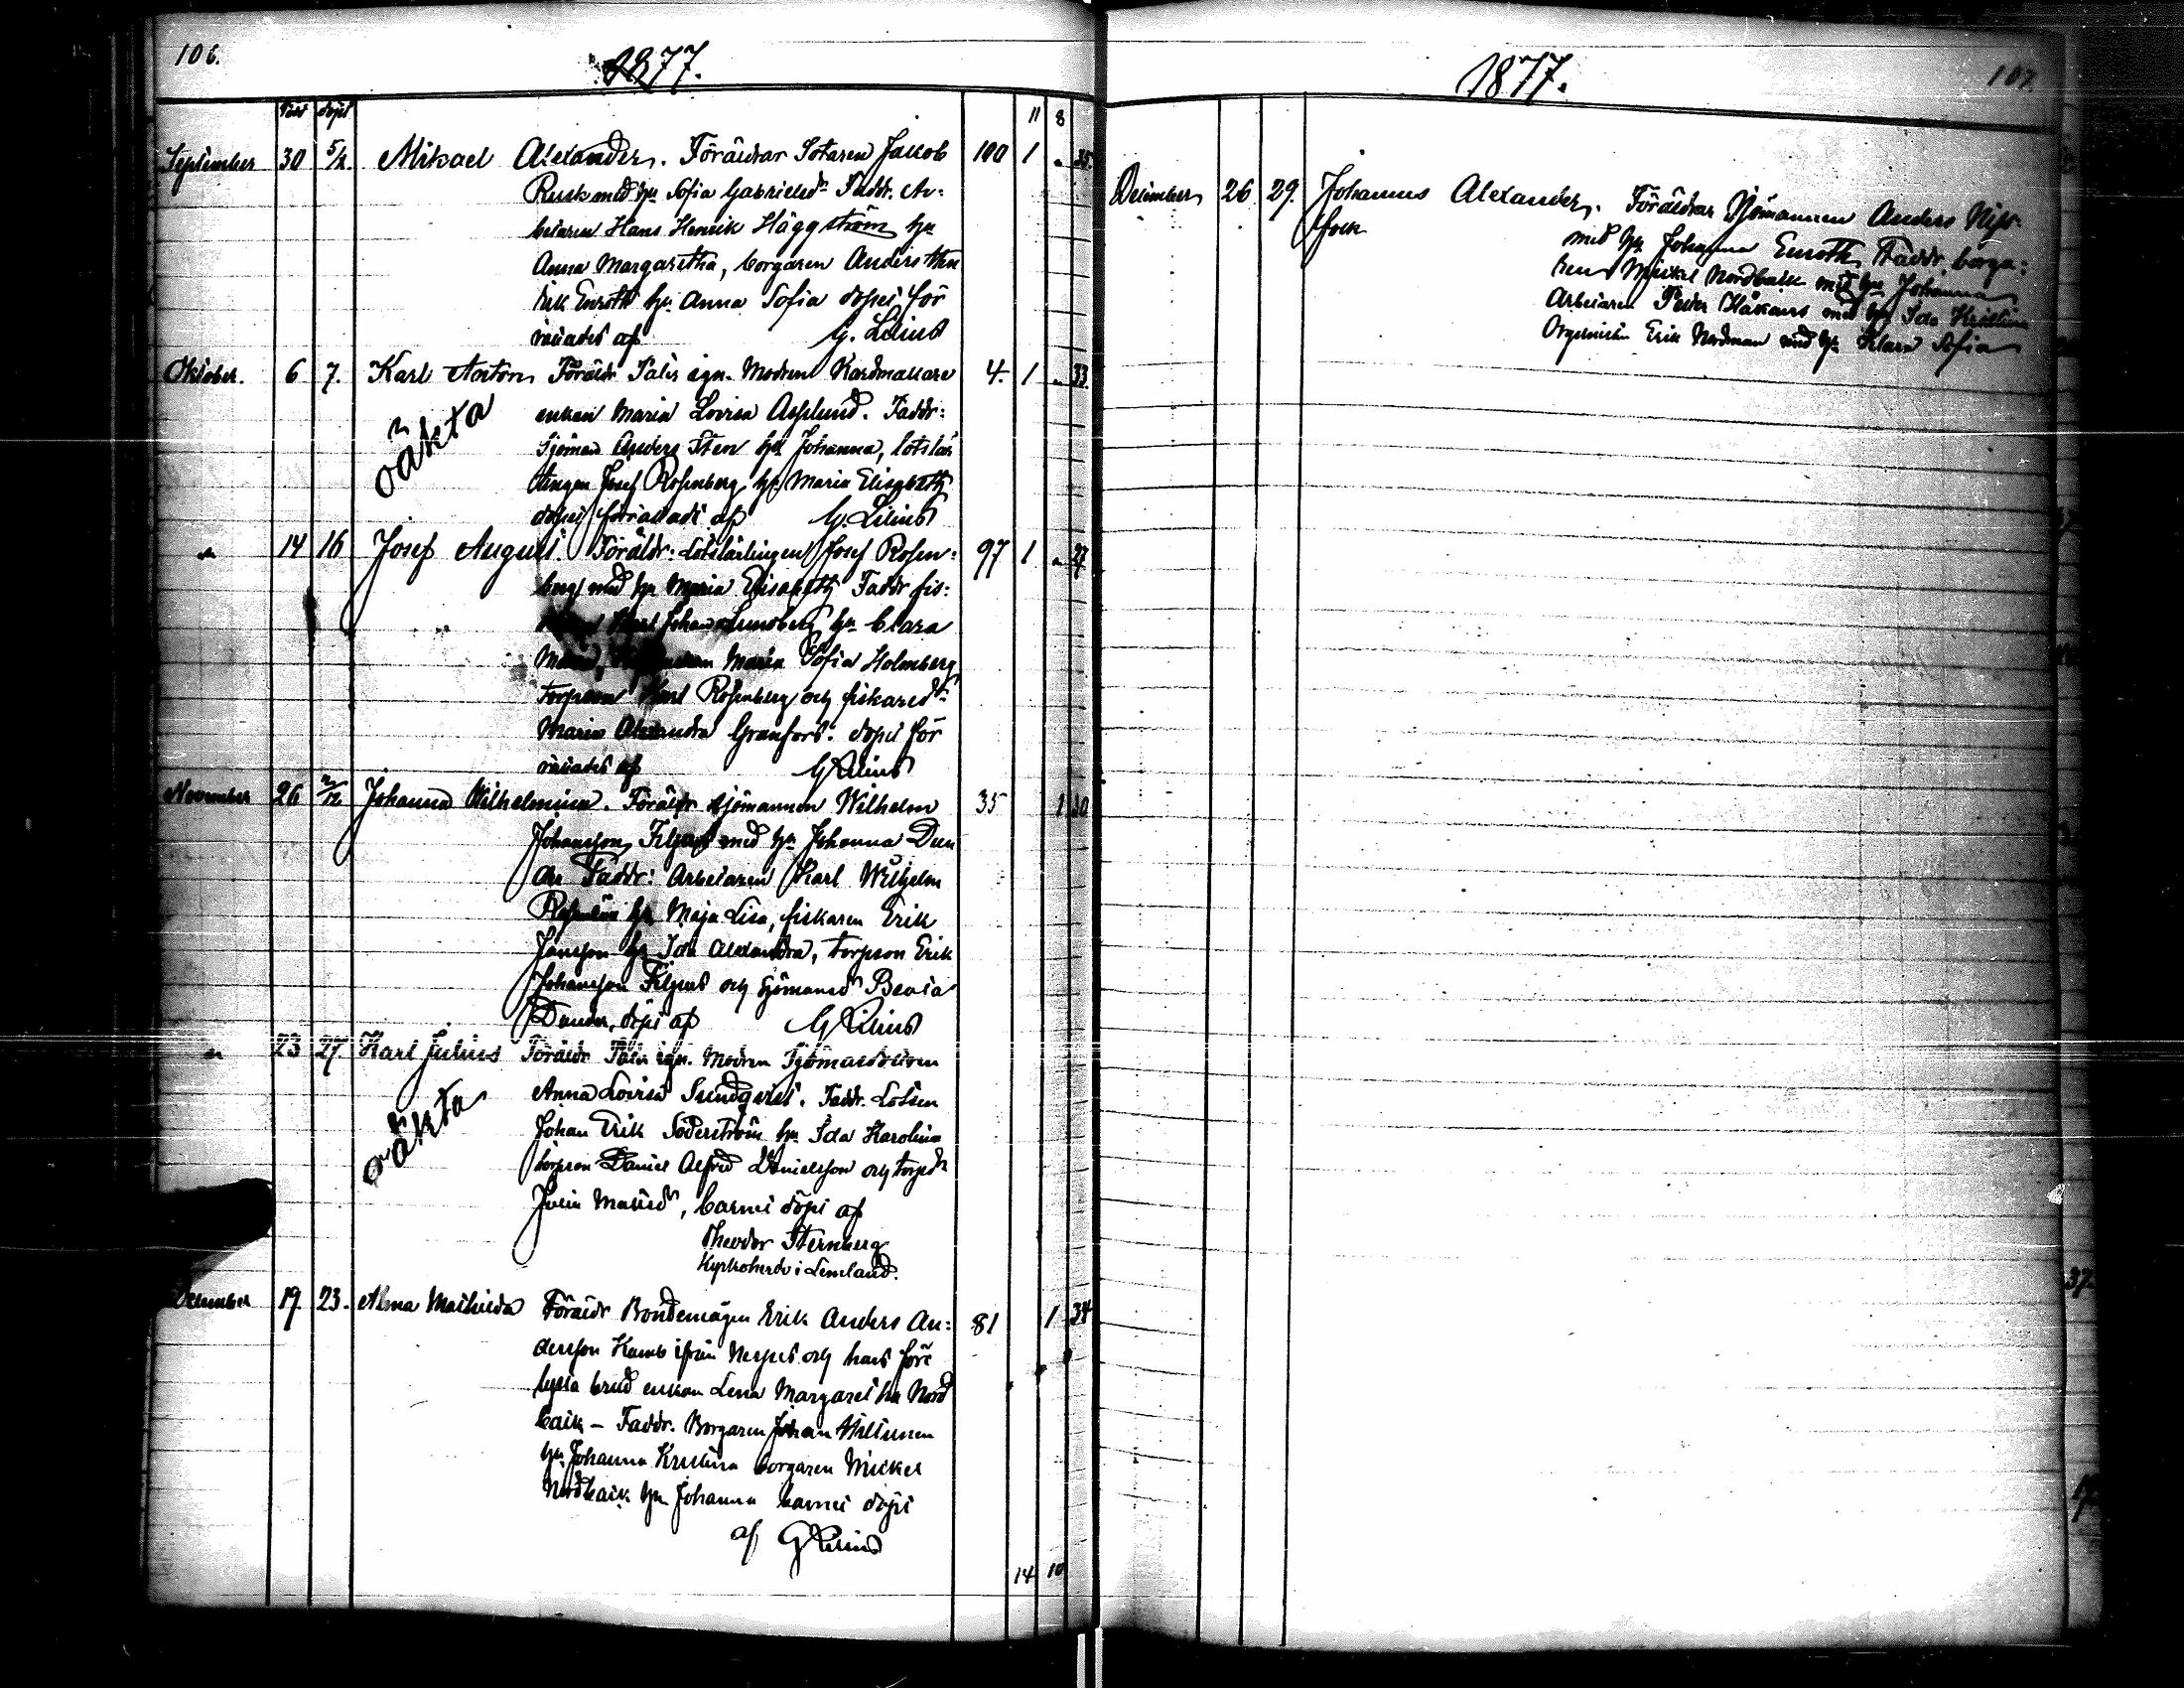 106.
1877.
född döpt 11 8
September 30 5/12. Mikael Alexander. Föräldrar Sotaren Jakob 100 1 " 35.
Rusk med hu Sofia Gabrielsdr Faddr. Ar:
betaren Hans Henrik Häggström hu
Anna Margaretha, borgaren Anders Hen
rik Enroth hu Anna Sofia dopet för
rättades af G. Lilius
Oktober. 6 7. Karl Anton Föräldr Fater ign. Modren Kardmakare 4. 1 " 33.
enkan Maria Lovisa Asplund. Faddr:
oäkta
Sjöman Anders Sten hu Johanna, lotslär
lingen Josef Rosenberg hu Maria Elisabeth
dopet förrättadt af G. Lilius
" 14 16 Josef August Föräldr: Lotslärlingen Josef Rosen: 97 1 " 27.
berg med hu Maria Elisabeth Faddr fis:
Karl Johan hu Clara
Maria Sofia Holmberg,
torpson Karl Rosenberg och fiskaredr
Maria Alexandra Granfors. dopet för
rättades af G Lilius
November 26 2/12 Johanna Wilhelmina. Föräldr sjömannen Wilhelm 35 1 30
Johansson Filpus med hu Johanna Dun
der Faddr: Arbetaren Karl Wilhelm
hu Maja Lisa, fiskaren Erik
Jansson hu Ida Alexandra, torpson Erik
Johansson Filpus och Sjömansdr Beata
Dunder, döpt af G Lilius
" 23 27. Karl Julius Föräldr Fater ign. Modren Sjömansdottren
Anna Lovisa Sundqvist. Faddr. Lotsen
oäkta
Johan Erik Söderström hu Ida Karolina
torpson Daniel Alfred Danielsson och torpdr
Julia Matsdr, barnet döpt af
Theodor Sternberg
Kyrkoherde i Lemland.
December 19. 23. Alma Mathilda Föräldr Bondemågen Erik Anders An: 81 1 34
dersson Kamb ifrån Nerpes och hans före
lysta brud enkan Lena Margaretha Nord
back – Faddr. Borgaren Johan Hiltunen
hu Johanna Kristina borgaren Mickel
Nordback hu Johanna barnet döpt
af G Lilius
14 10
1877.
107.
December 26 29. Johannes Alexander. Föräldrar Sjömannen Anders
med hu Johanna Enroth Faddr. borga:
ren Mickel Nordback med hu Johanna
Arbetaren Petter Håkans med hu Ida Kristina
Orgelnisten Erik Nordman med hu Klara Sofia